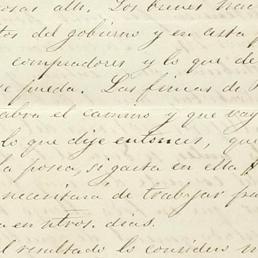 osas allí. Los bienes nac
tos del gobierno y en esta p
compradores y lo que de
se pueda. Las fincas de
abra el camino y que vay
lo que dije entonces, que
la posea, si gasta en ella
necesitará de trabajar pa
a en otros días.
el resultado lo considero m